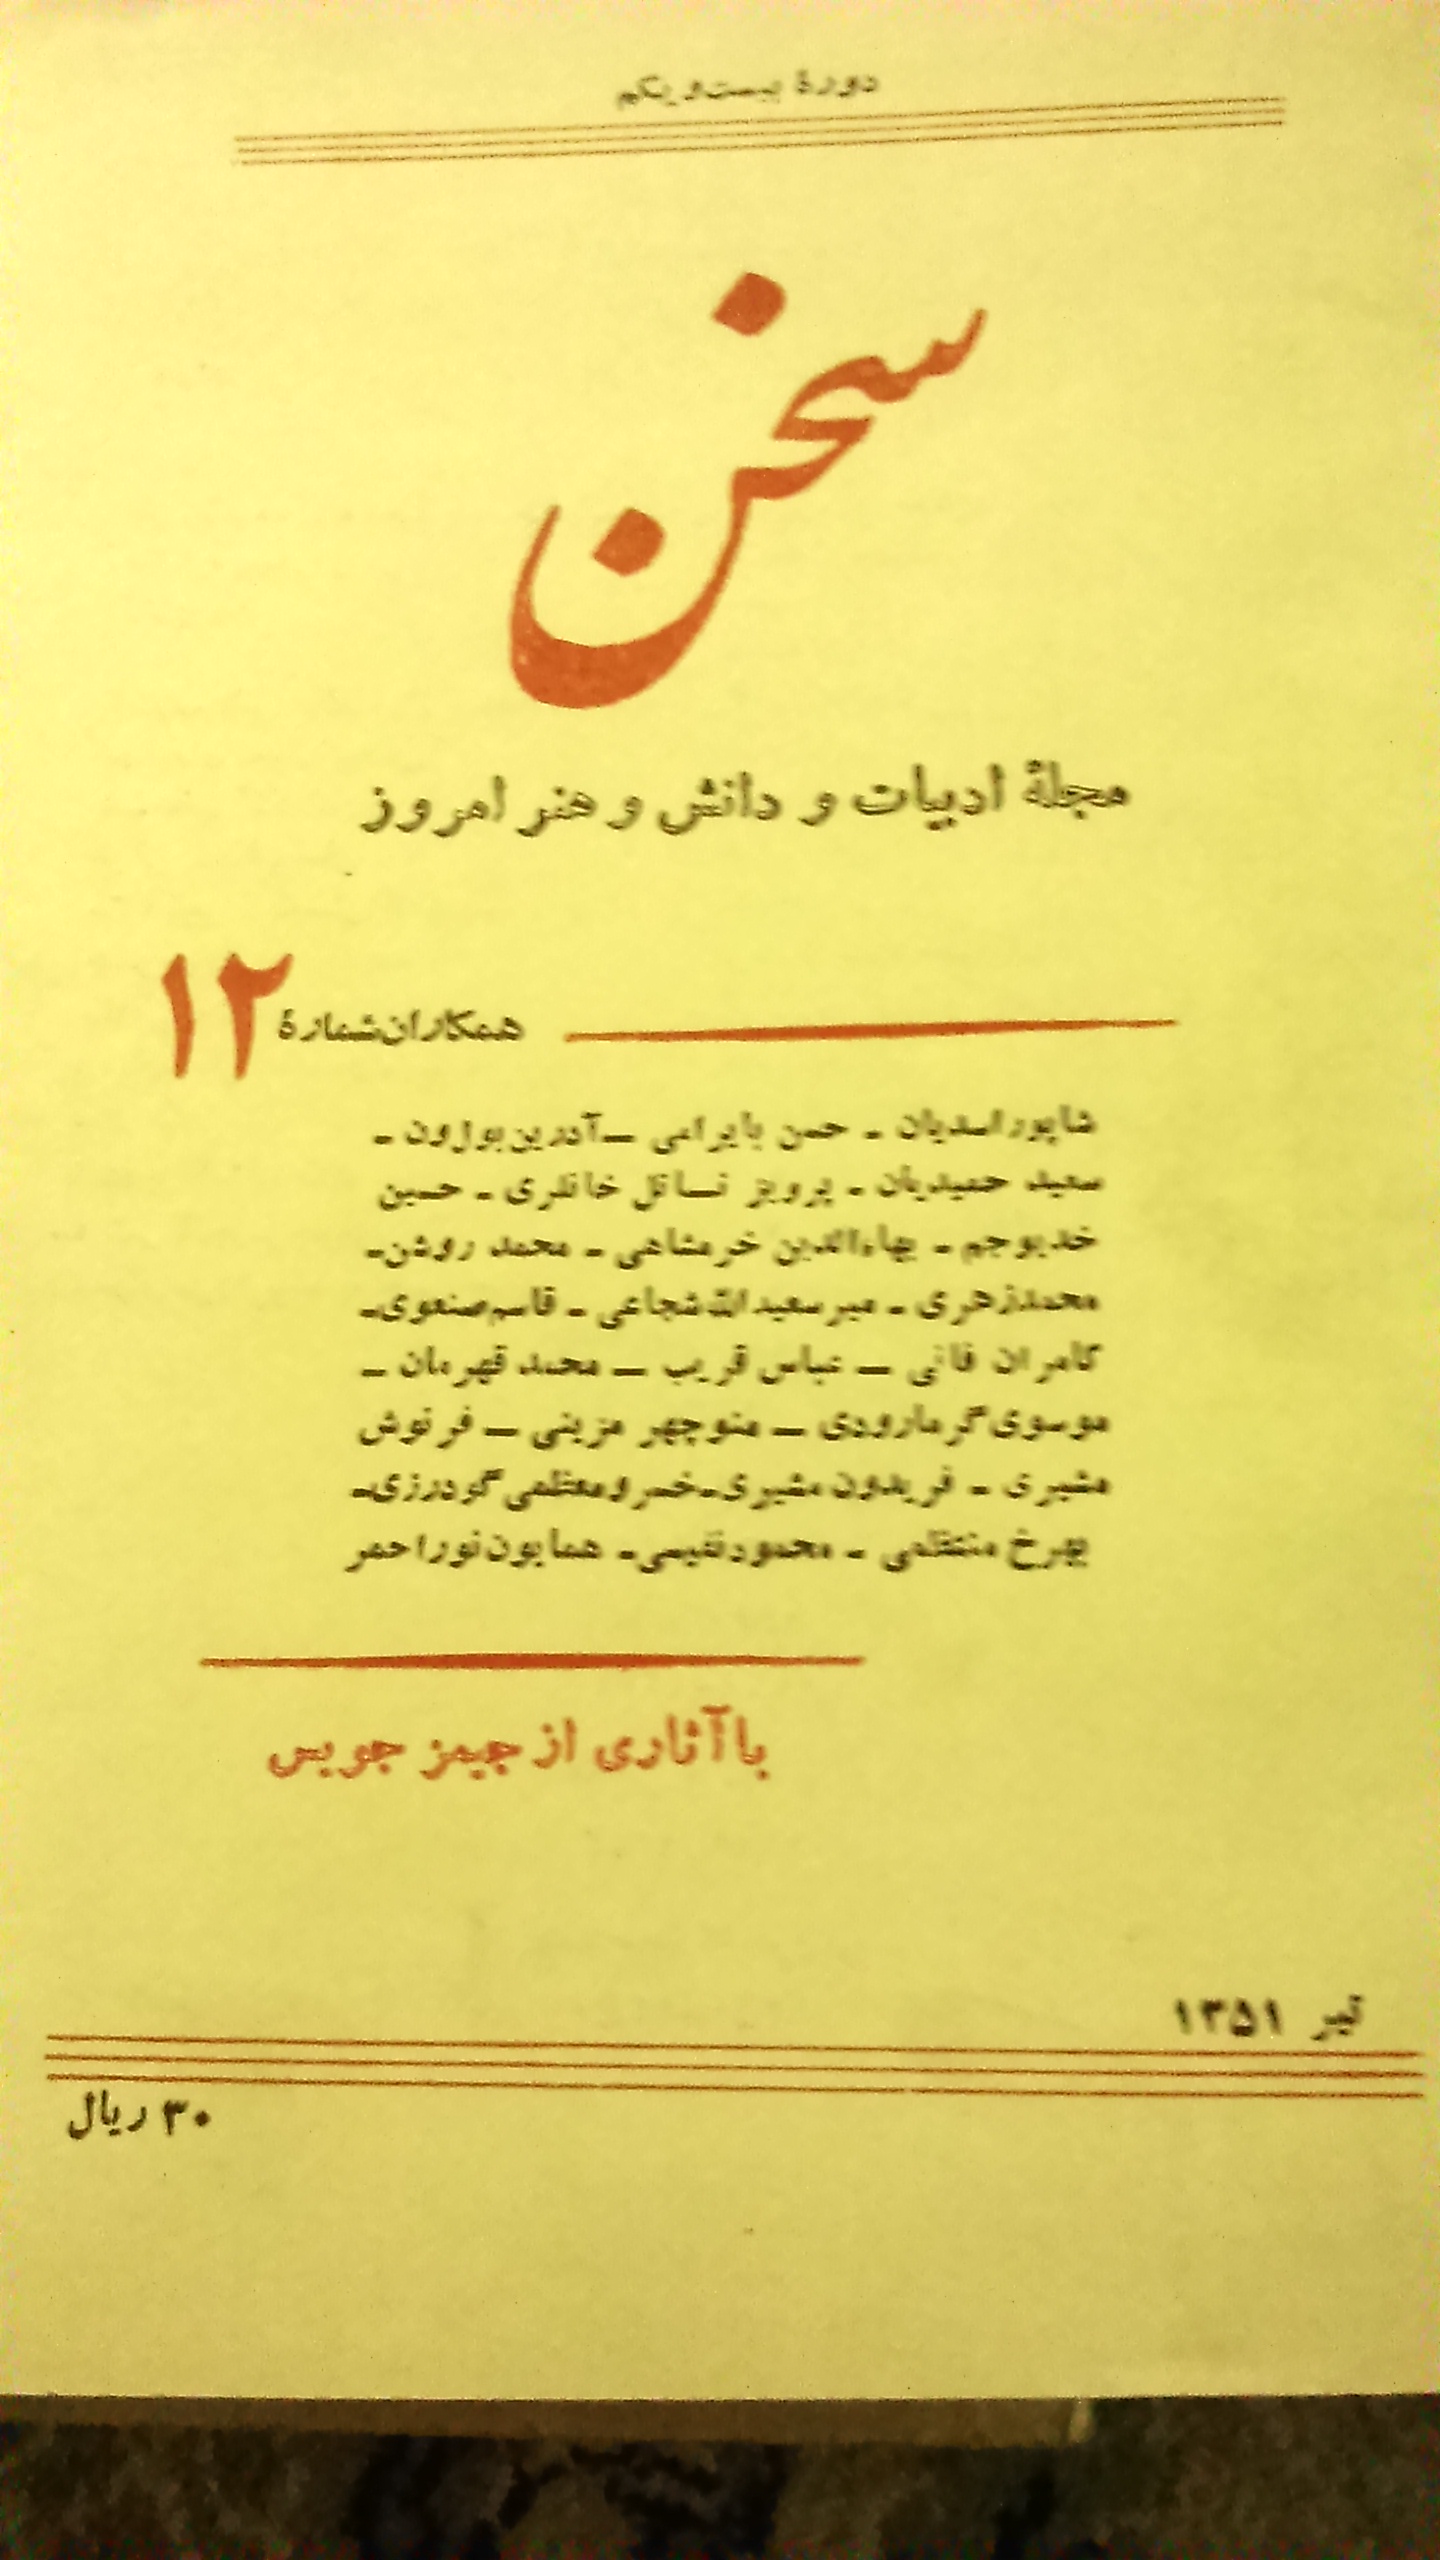 دورهٔ بیست‌و یکم
سخن
مجلهٔ ادبیات و دانش و هنر امروز
همکاران شمارهٔ ۱۲
شاپور اسدیان - حسن بایرامی - آدرین بول‌ون -
سعید حمیدیان - پرویز ناتل خانلری - حسین
خدیوجم - بهاءالدین خرمشاهی - محمد روشن-
محمد زهری - میر سعیدالله شجاعی - قاسم صنعوی-
کامران فانی - عباس قریب - محمد قهرمان -
موسوی گرمارودی - منوچهر مزینی - فرنوش
مشیری - فریدون مشیری-خسرو معظمی گودرزی-
بهرخ منتظمی - محمود نفیسی- همایون نوراحمر
با آثاری از جیمز جویس
تیر ۱۳۵۱
۳۰ ریال